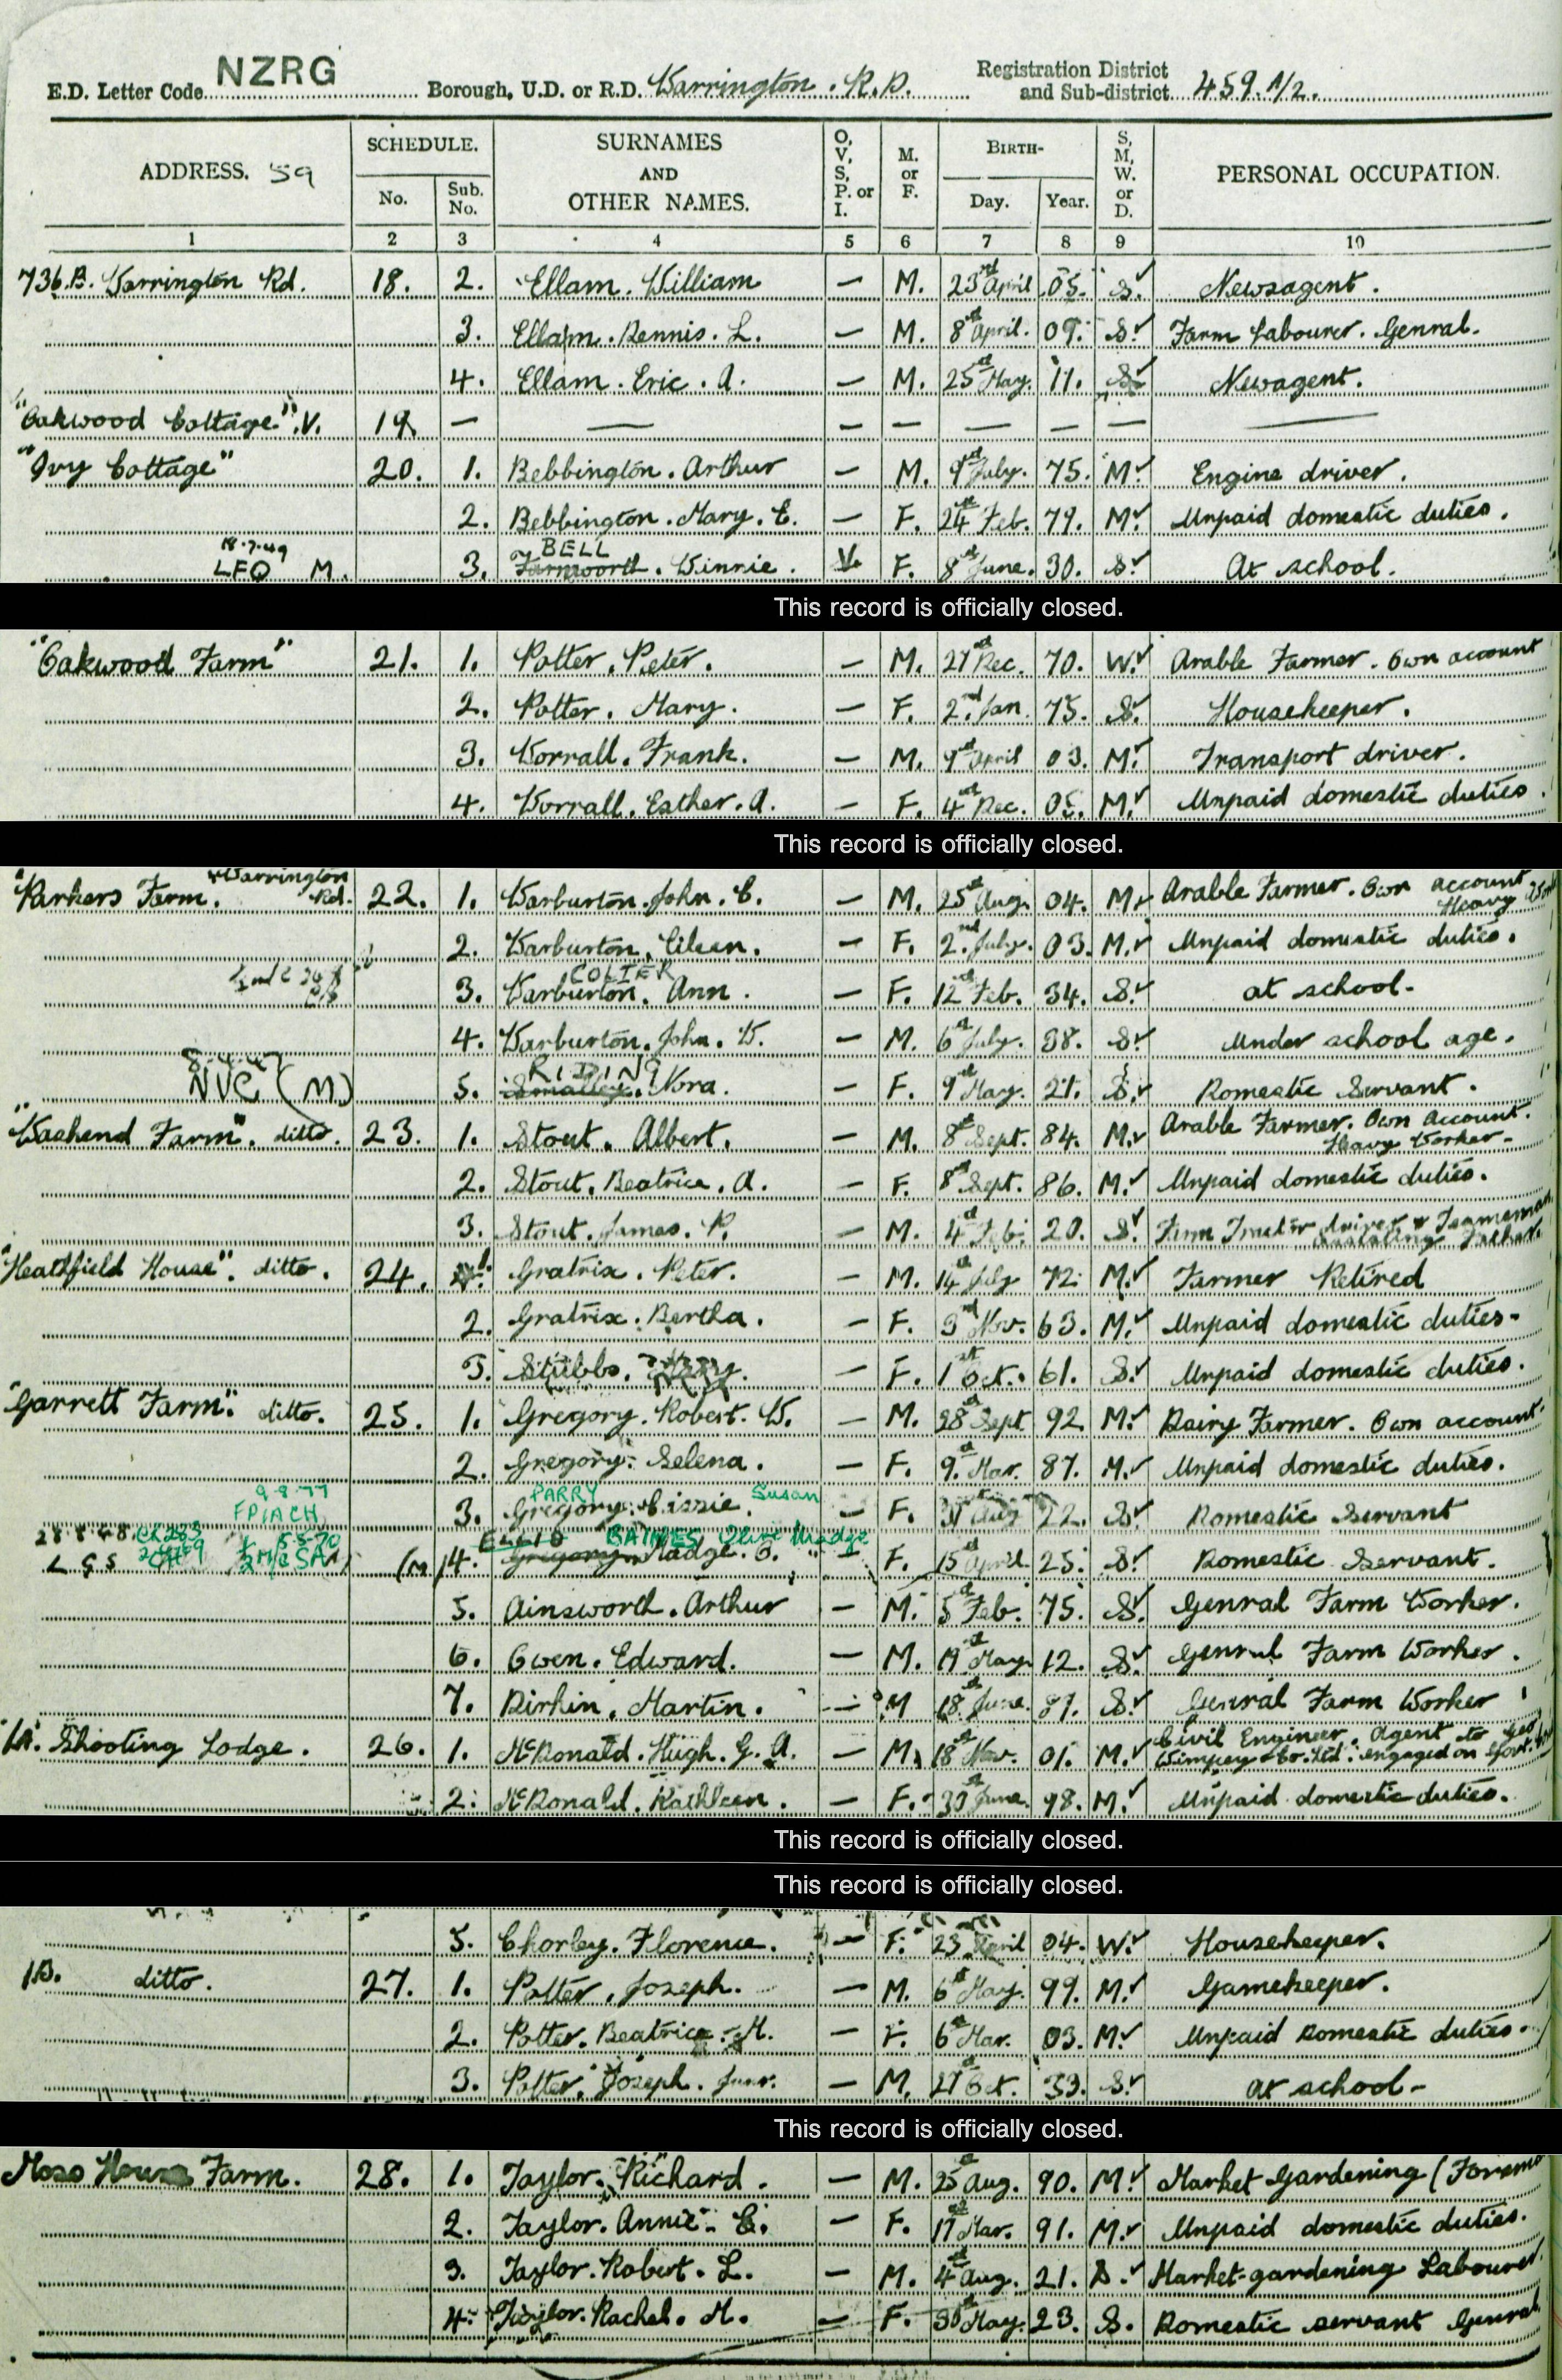 E.D. Letter Code NZRG Borough, U.D. or R.D. Warrington . R.D. Registration District and Sub-district 459. 1/2.
ADDRESS. 59 SCHEDULE. No. Sub. No. SURNAMES AND OTHER NAMES. O, V, S, P. or I. M. or F. BIRTH- Day. Year. S, M, W. or D. PERSONAL OCCUPATION.
1 2 3 4 5 6 7 8 9 10
736.B. Warrington Rd. 18. 2. Ellam. William — M. 23rd April 05. S. Newsagent.
3. Ellam. Dennis. L. — M. 8th April. 09. S. Farm Labourer. Genral.
4. Ellam. Eric. A. — M. 25th May. 11. S. Newagent.
"Oakwood Cottage". V. 19. — — — — — — — —
"Ivy Cottage" 20. 1. Bebbington. Arthur — M. 9th July. 75. M. Engine driver.
2. Bebbington. Mary. E. — F. 24th Feb. 79. M. Unpaid domestic duties.
18.7.49 BELL
LFQ M. 3. Farnworth. Winnie. V. F. 8th June. 30. S. At school.
This record is officially closed.
"Oakwood Farm" 21. 1. Potter. Peter. — M. 27th Dec. 70. W. Arable Farmer. Own account
2. Potter. Mary. — F. 2nd Jan. 75. S. Housekeeper.
3. Worrall. Frank. — M. 9th April 03. M. Transport driver.
4. Worrall. Esther. A. — F. 4th Dec. 05. M. Unpaid domestic duties.
This record is officially closed.
"Parkers Farm. Warrington Rd. 22. 1. Warburton. John. C. — M. 25th Aug. 04. M. Arable Farmer. Own account Heavy
2. Warburton. Eileen. — F. 2nd July. 03. M. Unpaid domestic duties.
COLIER
3. Warburton. Ann. — F. 12th Feb. 34. S. at school.
4. Warburton. John. W. — M. 6th July. 38. S. Under school age.
8.4.47 RIDING
NVC (M) 5. Smalley. Nora. — F. 9th May. 21. S. Domestic Servant.
"Washend Farm". ditto. 23. 1. Stout. Albert. — M. 8th Sept. 84. M. Arable Farmer. Own Account. Heavy Worker.
2. Stout. Beatrice. A. — F. 8th Sept. 86. M. Unpaid domestic duties.
3. Stout. James. P. — M. 4th Feb. 20. S. Farm Tractor driver & Teamsman assisting Father.
"Heathfield House". ditto. 24. 1. Gratrix. Peter. — M. 14th July 72. M. Farmer Retired
2. Gratrix. Bertha. — F. 3rd Nov. 63. M. Unpaid domestic duties.
3. Stubbs. — F. 1st Oct. 61. S. Unpaid domestic duties.
"Garrett Farm". ditto. 25. 1. Gregory. Robert. W. — M. 28th Sept 92. M. Dairy Farmer. Own account.
2. Gregory. Selena. — F. 9th Mar. 87. M. Unpaid domestic duties.
9-8-77 PARRY Susan
FP/ACH 3. Gregory. Cissie. — F. 31st Aug 22. S. Domestic Servant
28 8 48 5-5-70 BAINES Olive Madge
L G S (M) 4. Gregory. Madge. O. — F. 15th April. 25. S. Domestic Servant.
5. Ainsworth. Arthur — M. 5th Feb. 75. S. Genral Farm Worker.
6. Owen. Edward. — M. 19th May. 12. S. Genral Farm Worker.
7. Dirkin. Martin. — M 18th June. S. Genral Farm Worker
1A. Shooting Lodge. 26. 1. McDonald. Hugh. G. A. — M. 18th Nov. 01. M. Civil Engineer. Agent to Geo. Wimpey & Co. Ltd. engaged on Govt.
2. McDonald. Kathleen. — F. 30th June. 98. M. Unpaid domestic duties.
This record is officially closed.
This record is officially closed.
5. Chorley. Florence. — F. 23rd April 04. W. Housekeeper.
1B. ditto. 27. 1. Potter. Joseph. — M. 6th May. 99. M. Gamekeeper.
2. Potter. Beatrice. M. — F. 6th Mar. 03. M. Unpaid Domestic duties.
3. Potter. Joseph. Junr. — M. 27th Oct. 33. S. at school.
This record is officially closed.
Moss House Farm. 28. 1. Taylor. Richard. — M. 25th Aug. 90. M. Market Gardening (
2. Taylor. Annie. E. — F. 17th Mar. 91. M. Unpaid domestic duties.
3. Taylor. Robert. L. — M. 4th Aug. 21. S. Market-gardening Labourer
4. Taylor. Rachel. M. — F. 30th May. 23. S. Domestic servant Genral